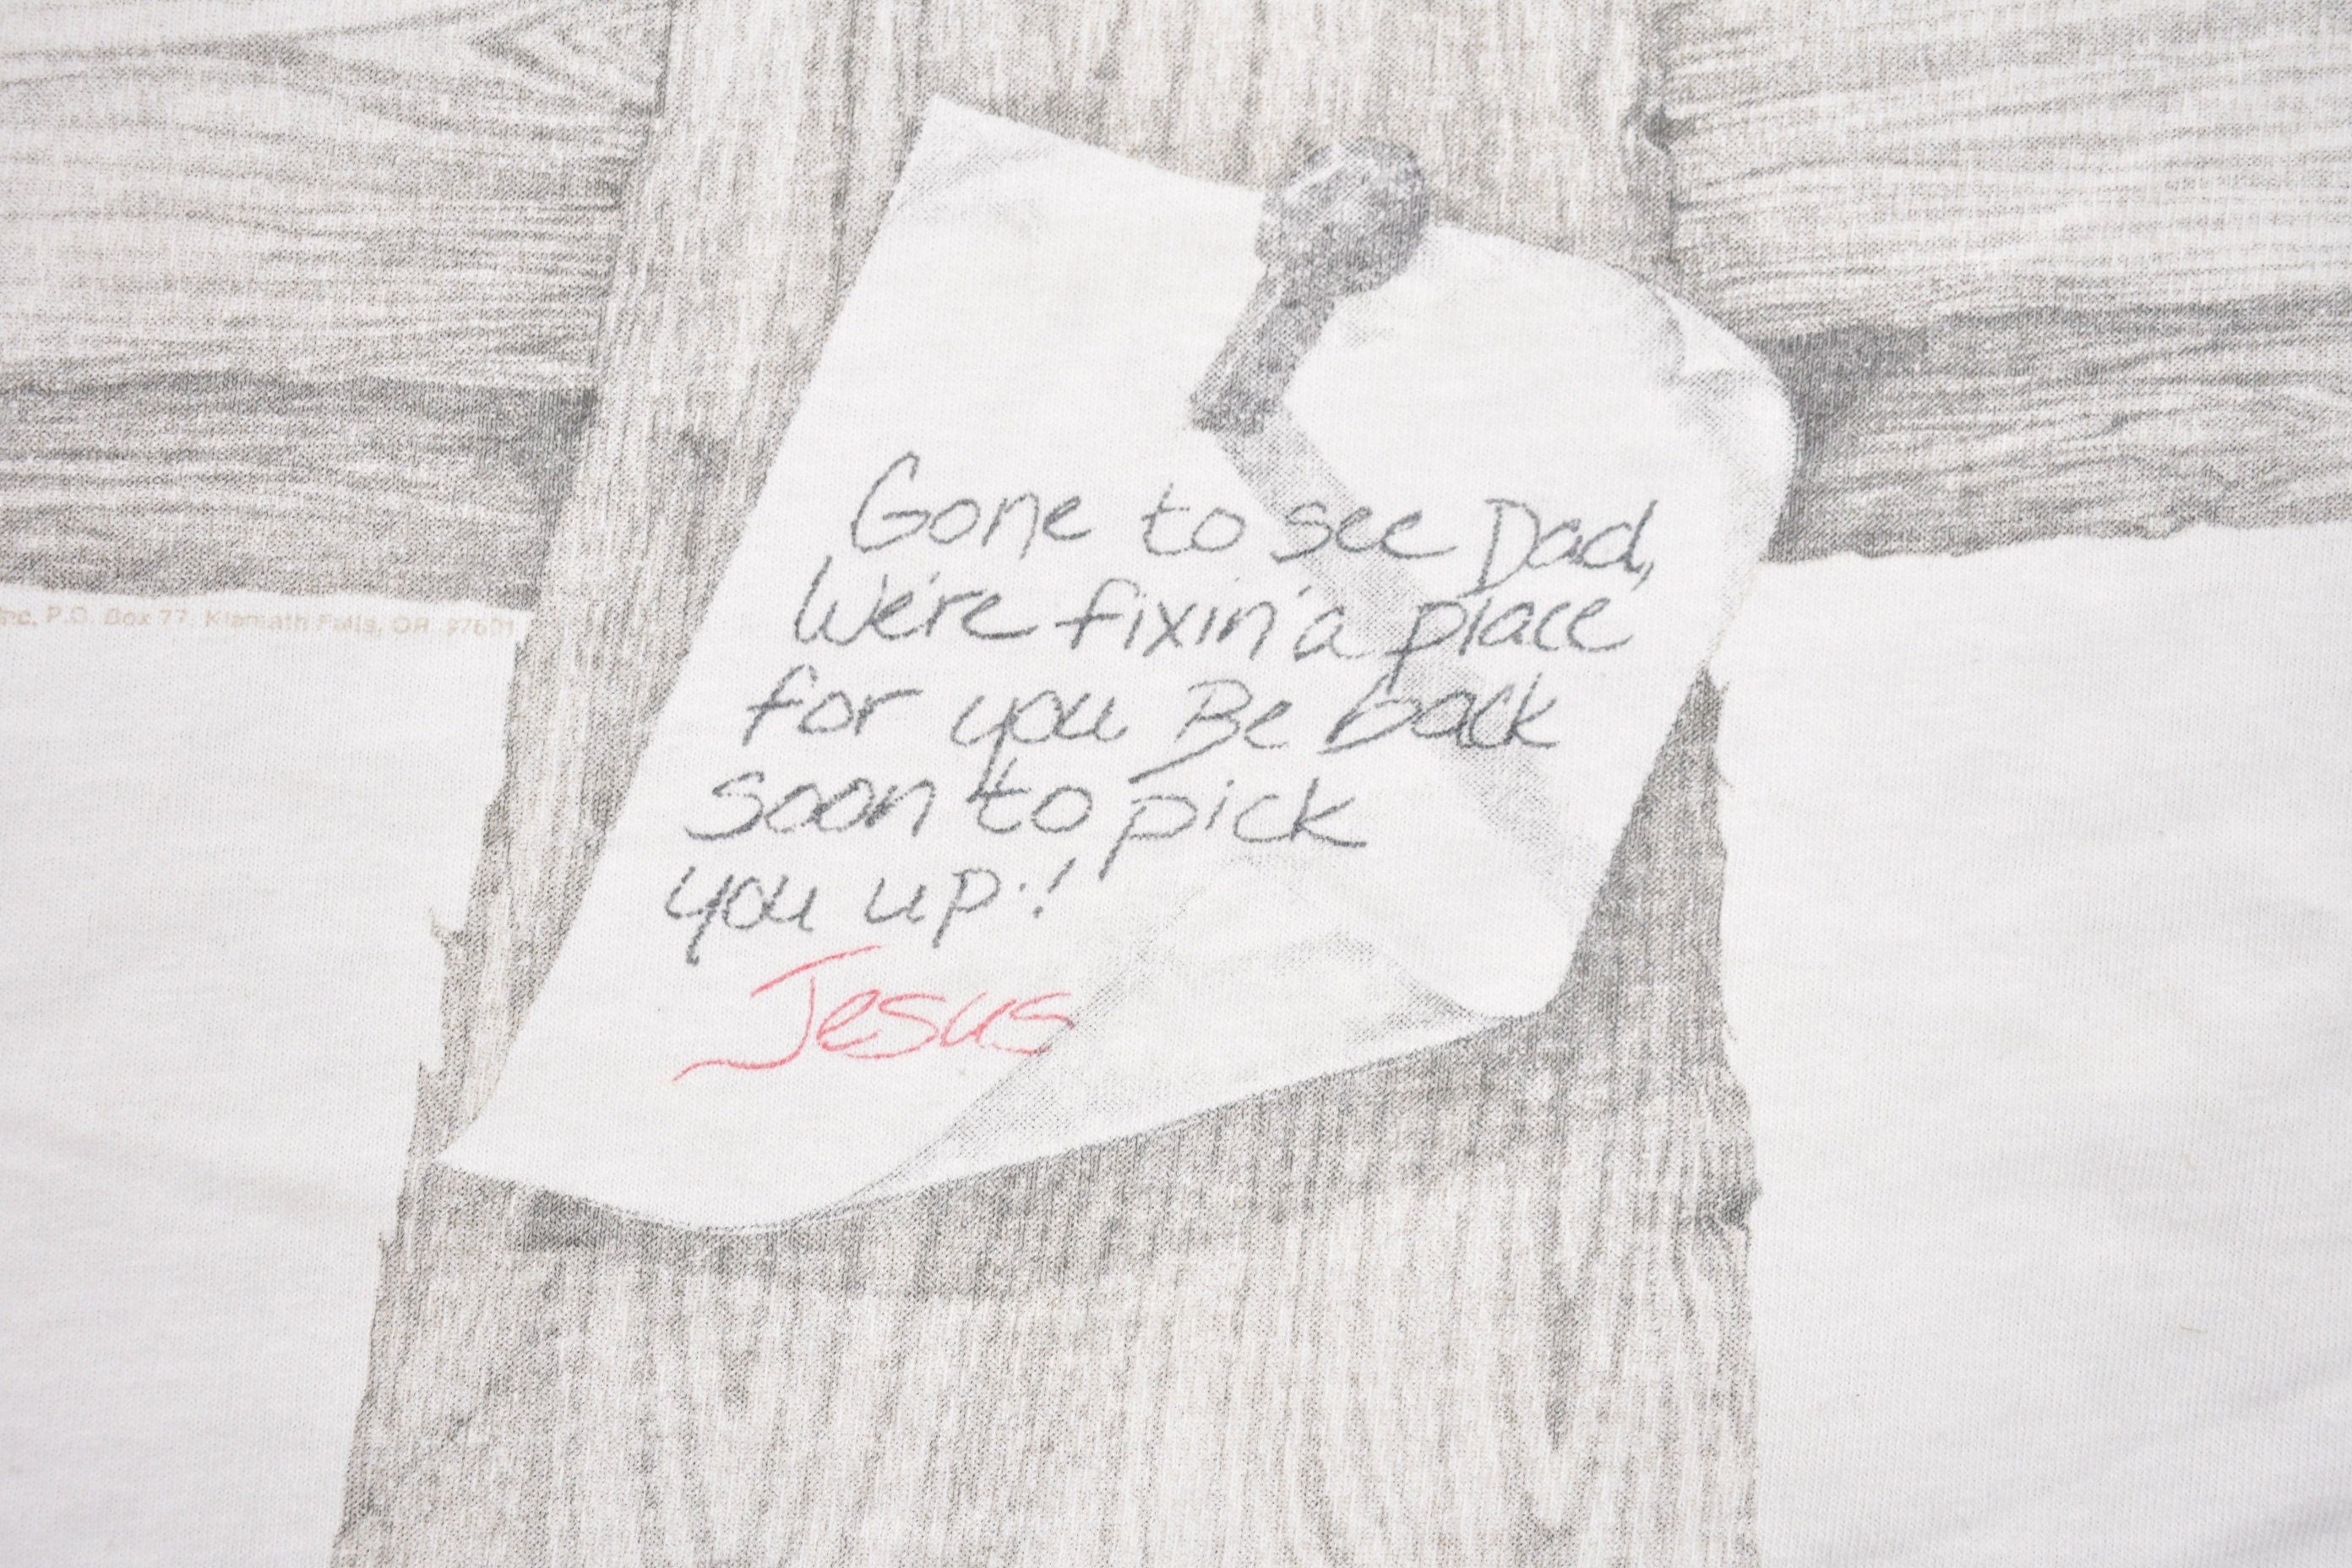 Gone to see Dad,
We're fixin' a place
for you Be back
soon to pick
you up!
Jesus
Inc, P.O. Box 77, Klamath Falls, OR 97601